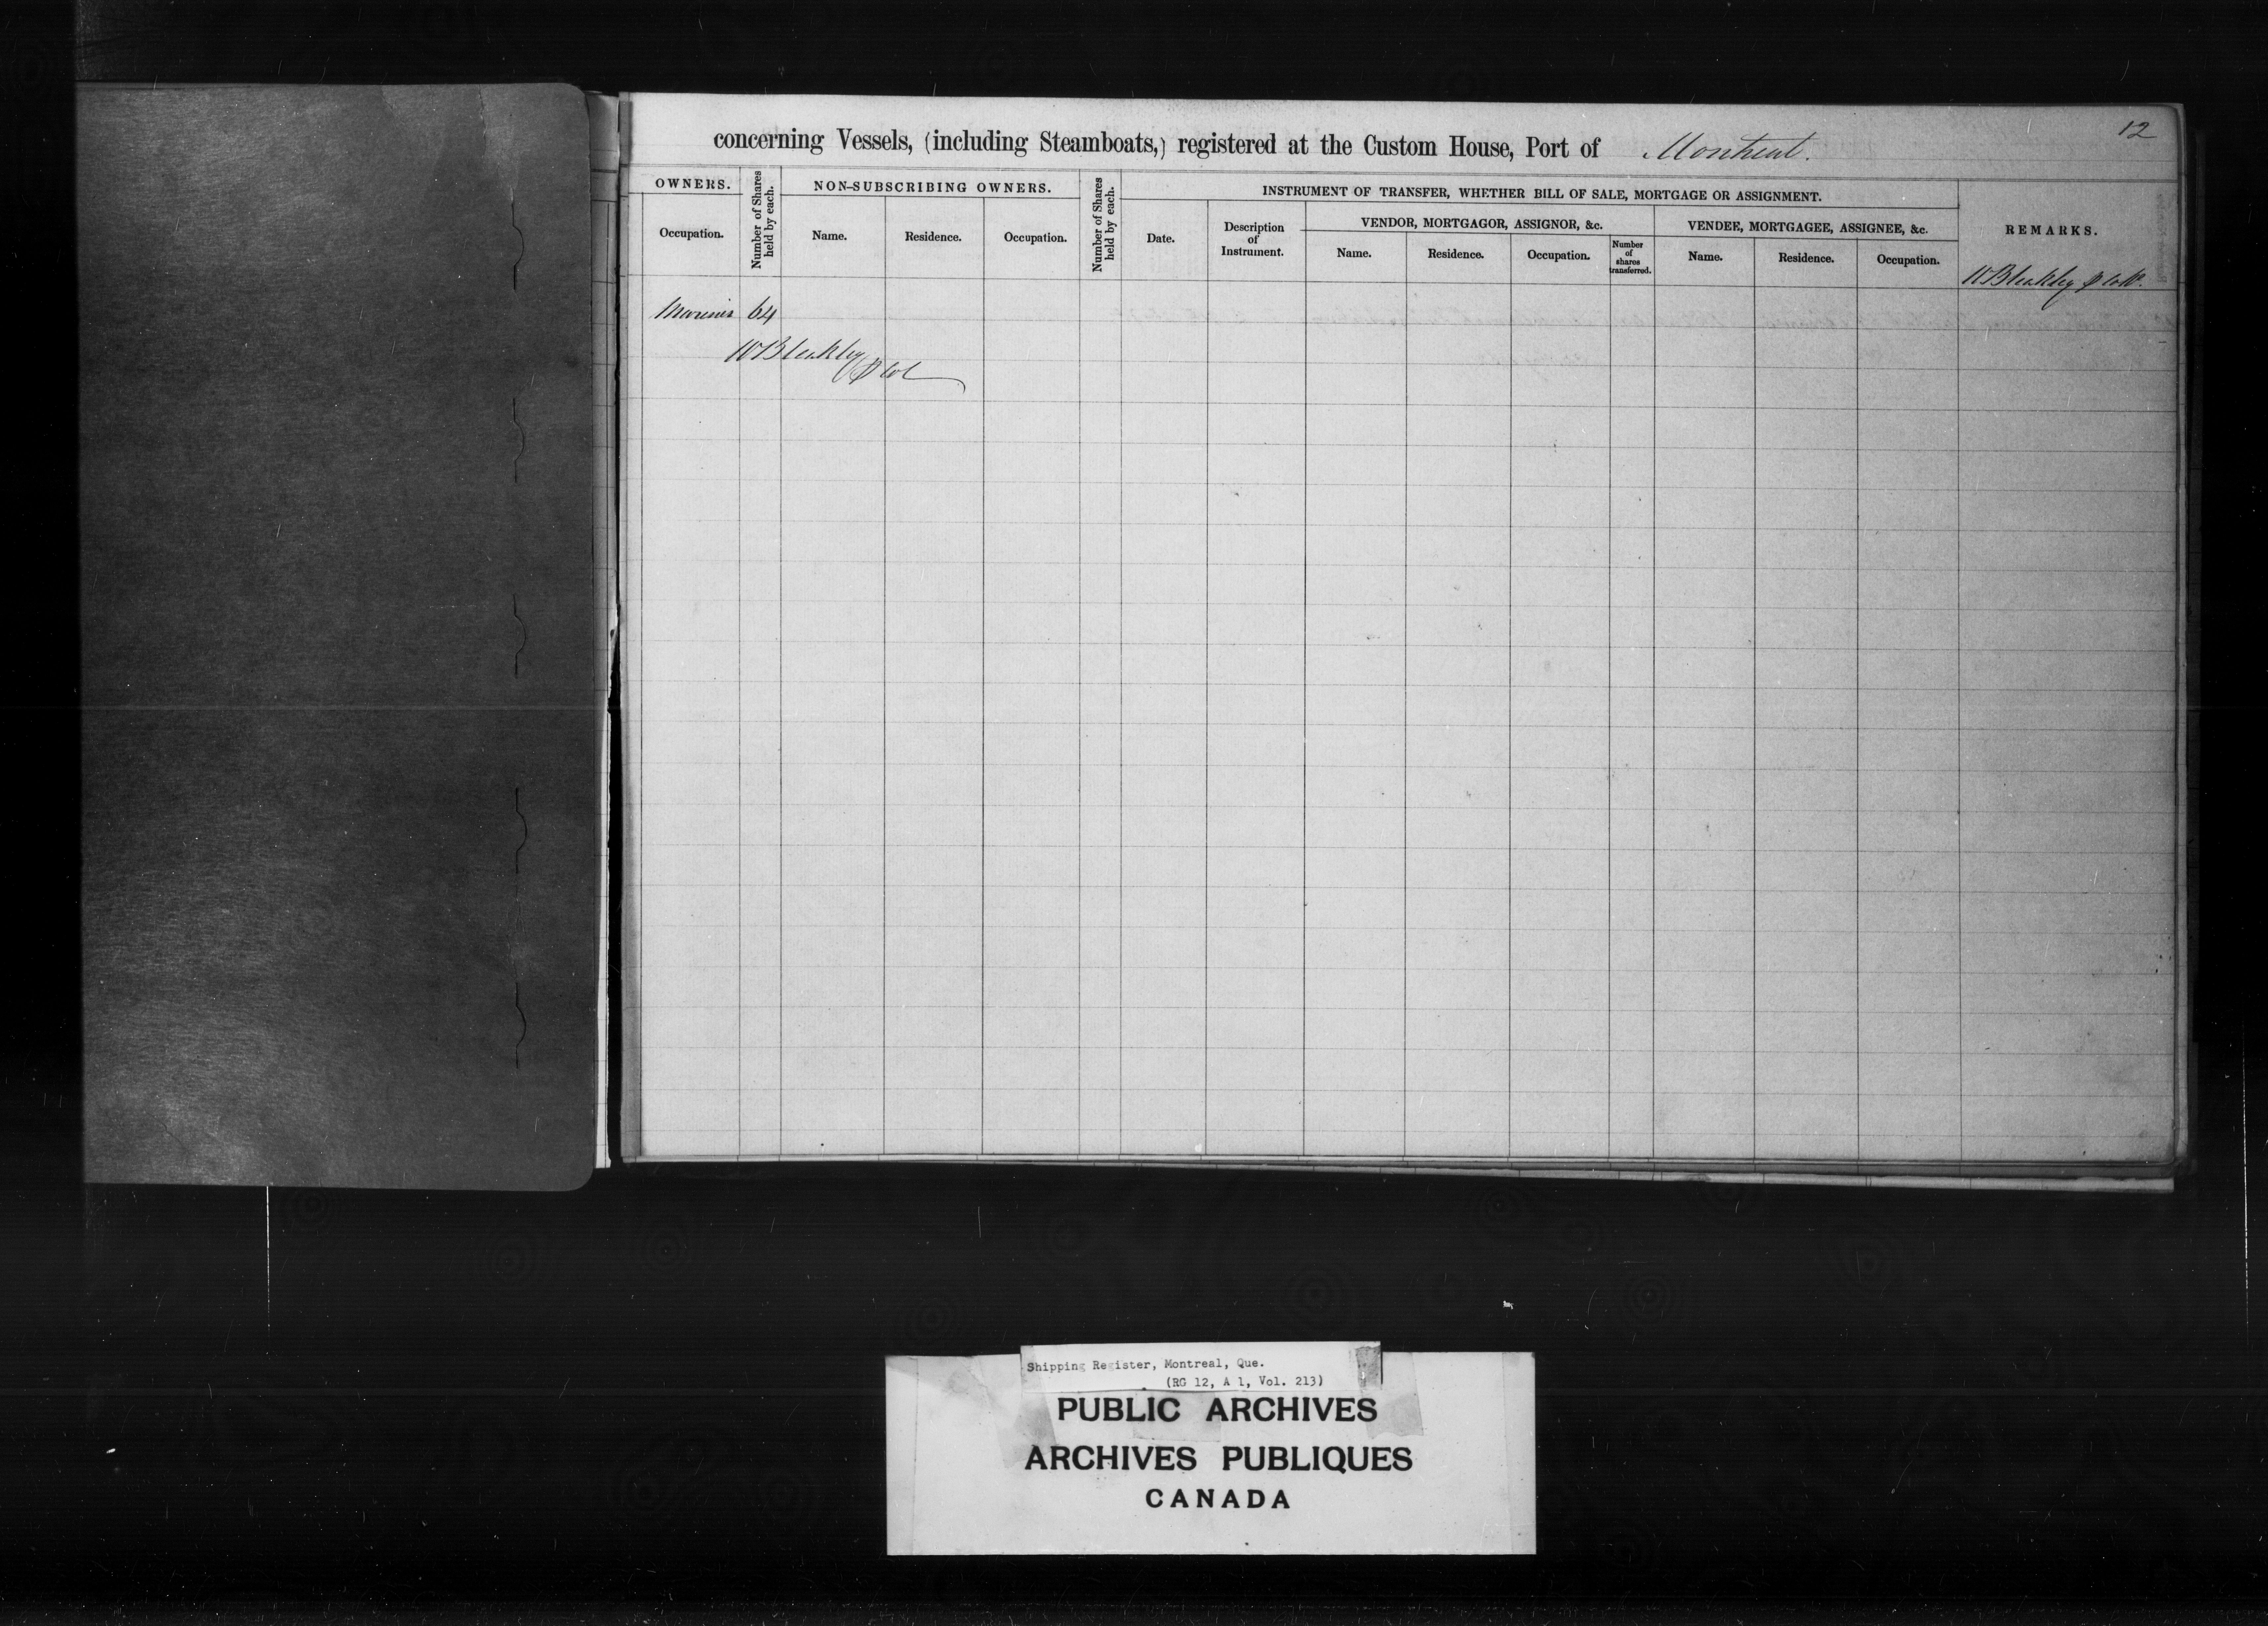 12
concerning Vessels, (including Steamboats,) registered at the Custom House, Port of Montreal.
OWNERS.
Number of Shares held by each.
NON-SUBSCRIBING OWNERS.
Number of Shares held by each.
INSTRUMENT OF TRANSFER, WHETHER BILL OF SALE, MORTGAGE OR ASSIGNMENT.
REMARKS.
Occupation.
Name.
Residence.
Occupation.
Date.
Description
of
Instrument.
VENDOR, MORTGAGOR, ASSIGNOR, &c.
VENDEE, MORTGAGEE, ASSIGNEE, &c.
Name.
Residence.
Occupation.
Number
of
shares
transferred.
Name.
Residence.
Occupation.
W Bleakley
Mariner 64
W Bleakley
Shipping Register, Montreal, Que.
(RG 12, A 1, Vol. 213)
PUBLIC ARCHIVES
ARCHIVES PUBLIQUES
CANADA